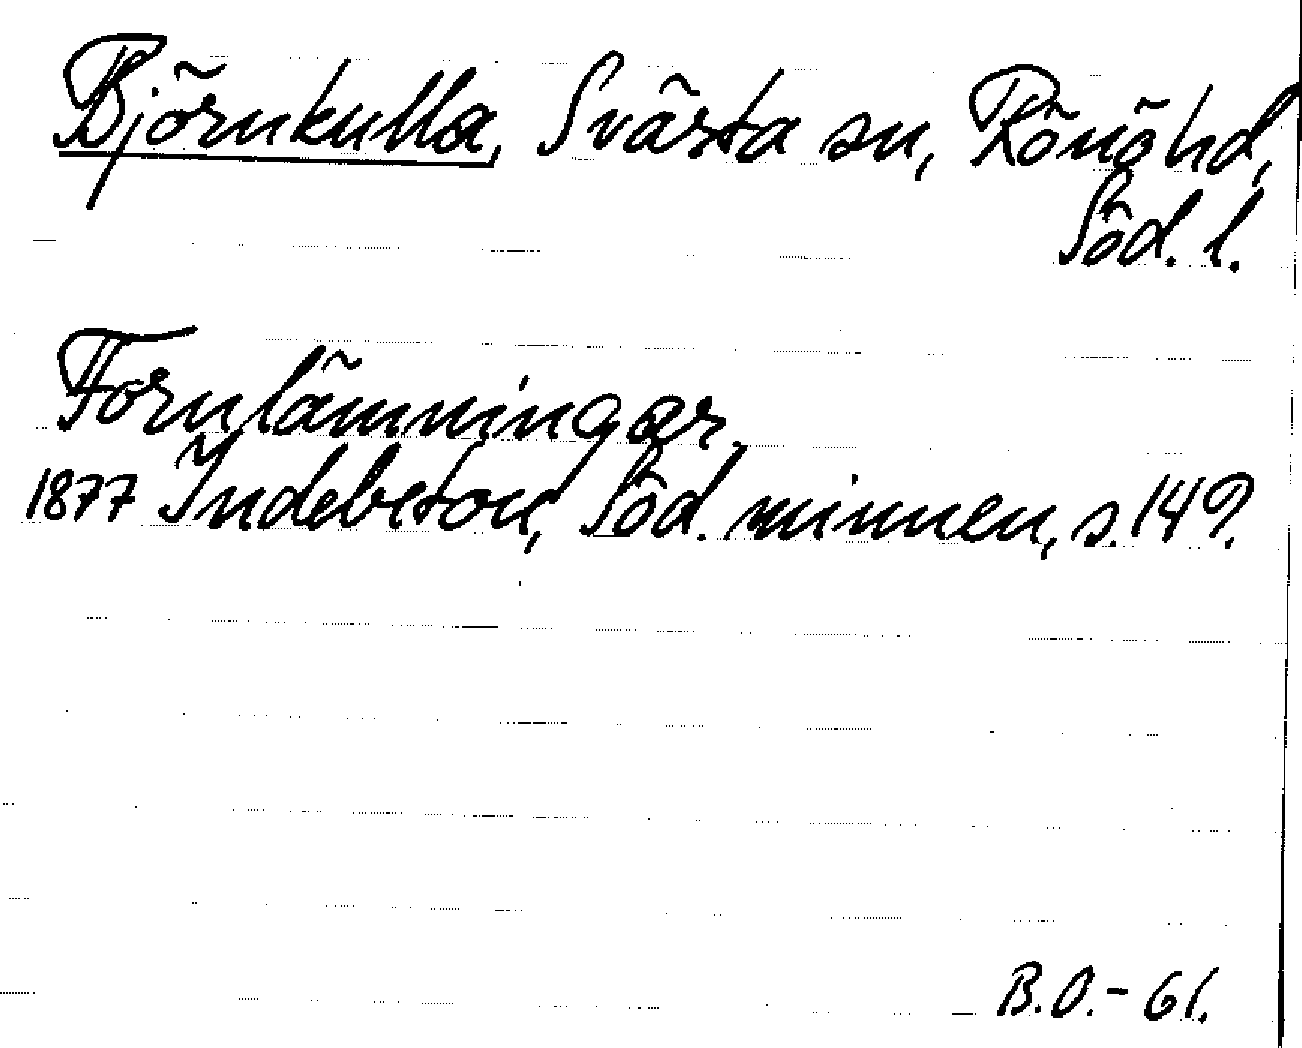 Björnkulla, Svärta sn, Rönö hd,
Söd. l.
Fornlämningar.
1877 Indebetou, Söd. minnen, s. 149.
B.O.-61.